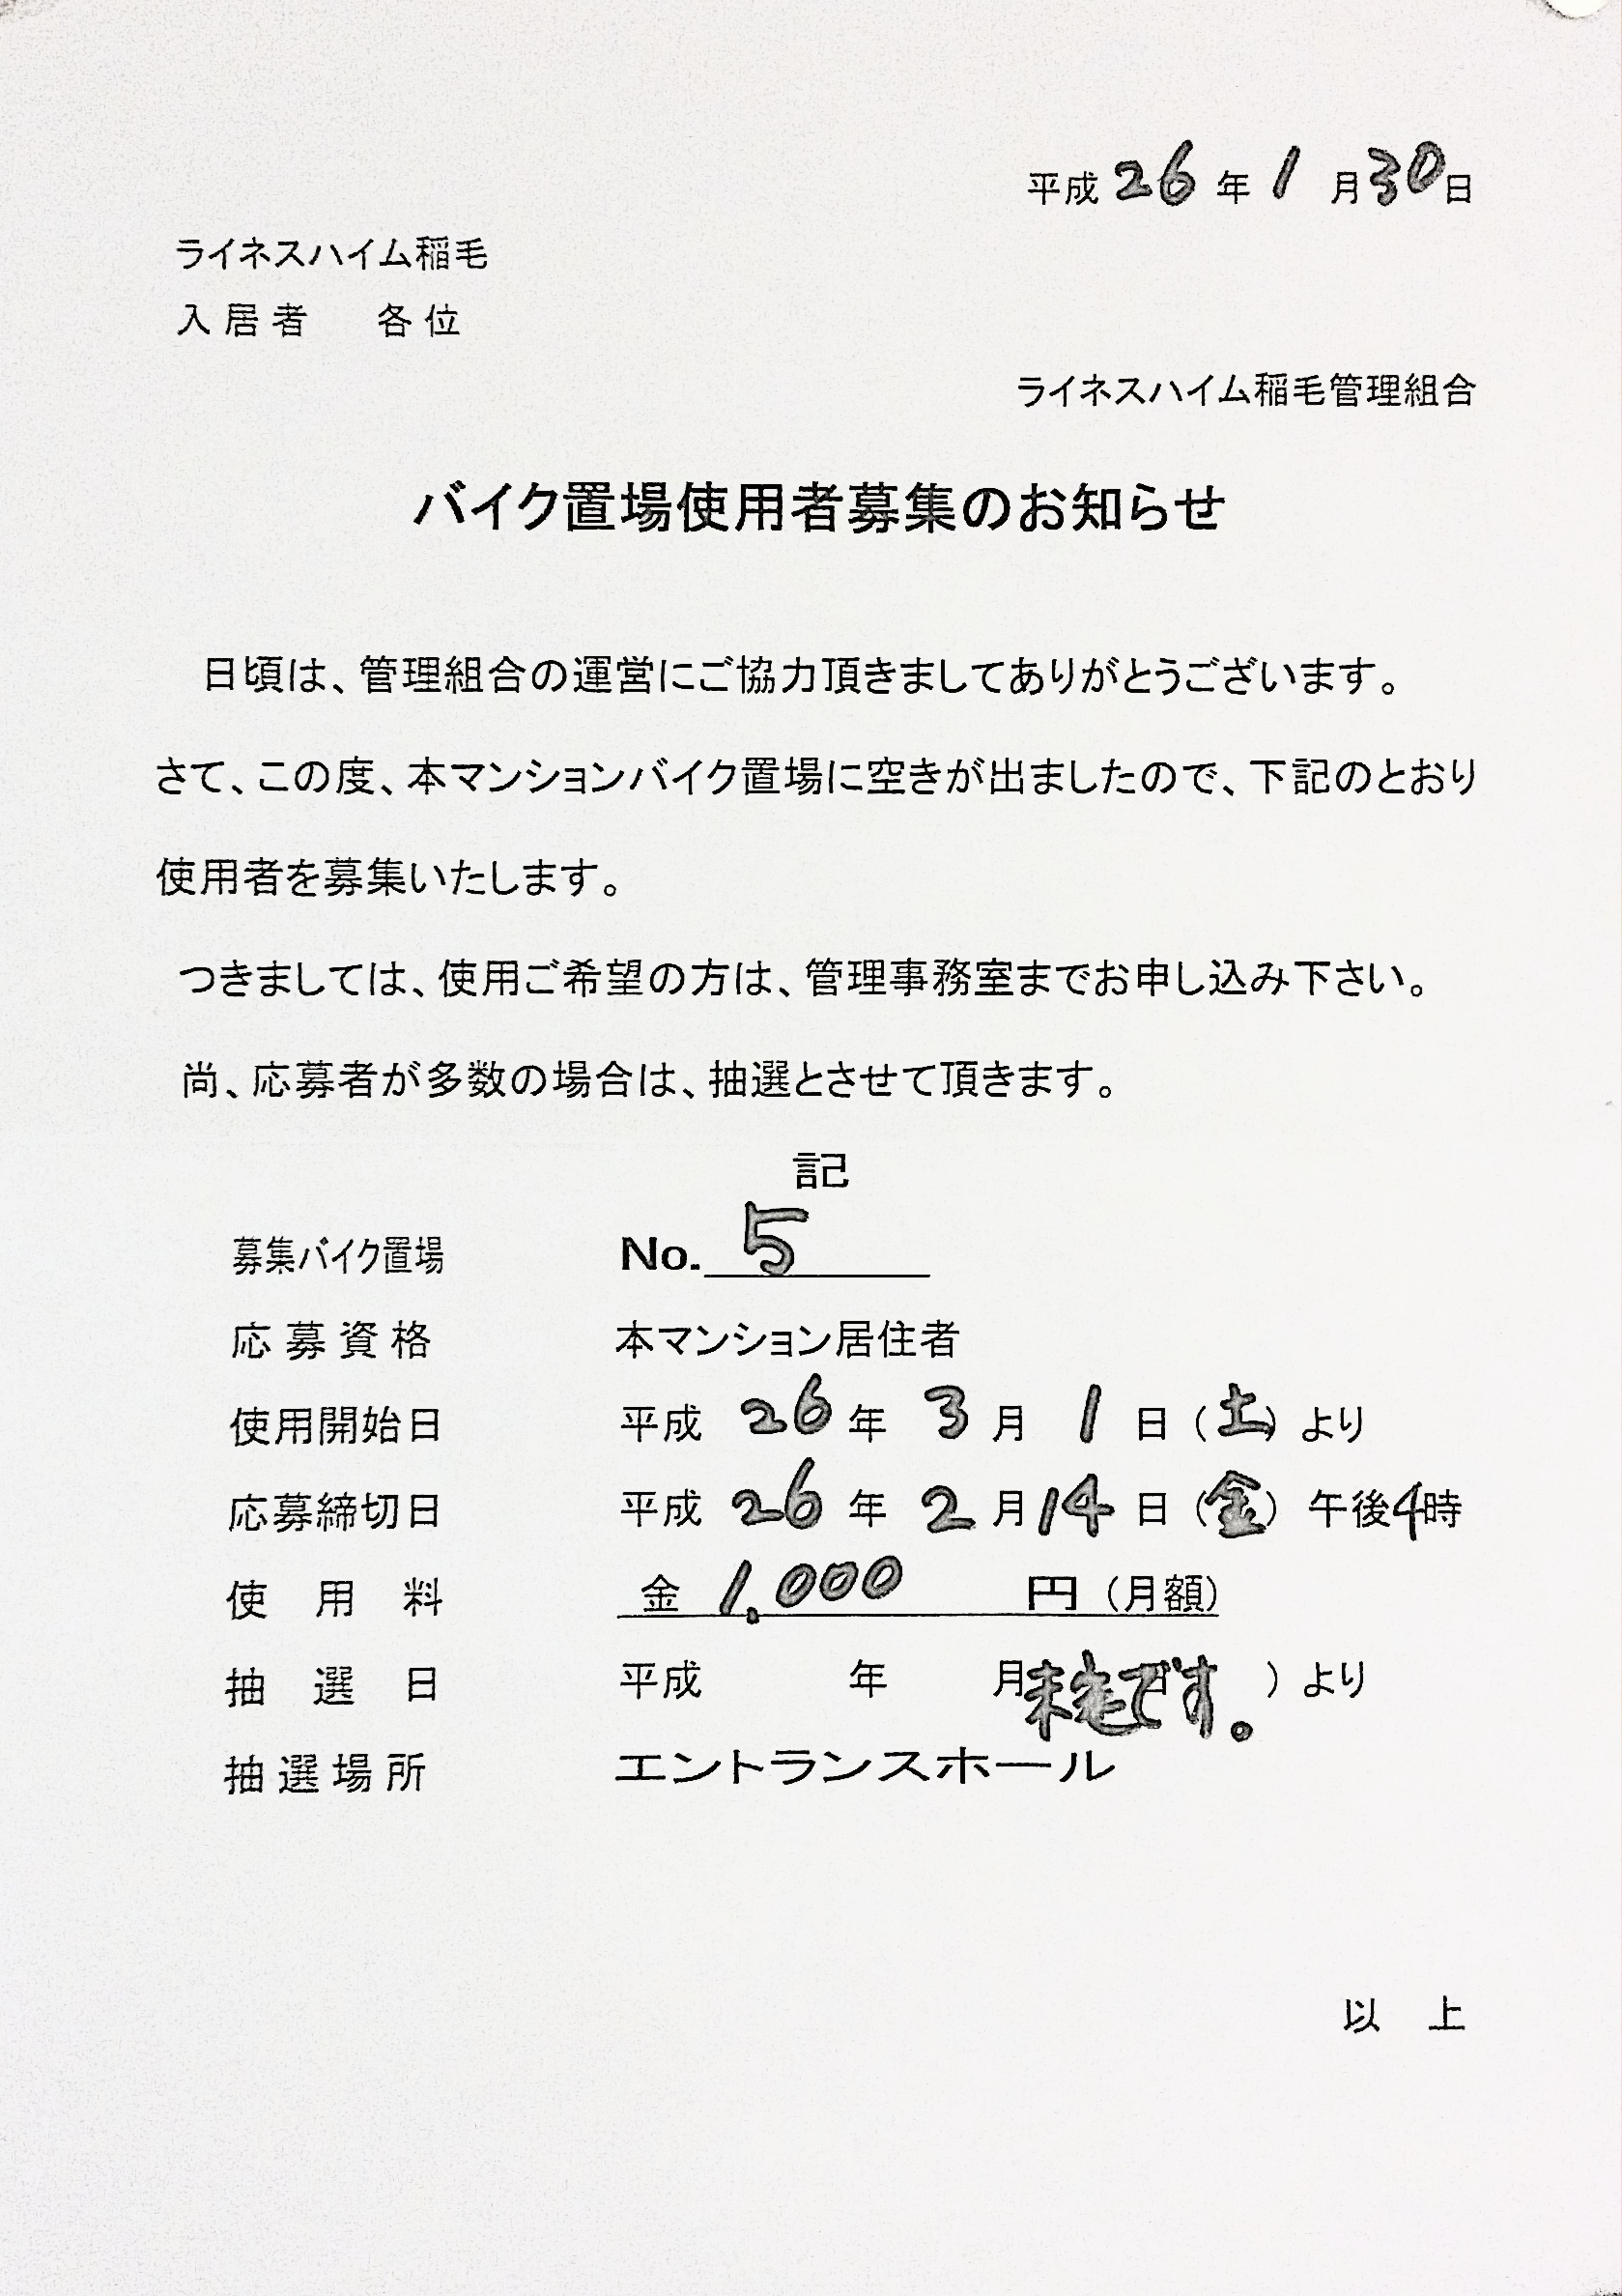 平成26年1月30日
ライネスハイム稲毛
入居者　各位
ライネスハイム稲毛管理組合
バイク置場使用者募集のお知らせ
日頃は、管理組合の運営にご協力頂きましてありがとうございます。
さて、この度、本マンションバイク置場に空きが出ましたので、下記のとおり
使用者を募集いたします。
つきましては、使用ご希望の方は、管理事務室までお申し込み下さい。
尚、応募者が多数の場合は、抽選とさせて頂きます。
記
募集バイク置場　No. 5
応募資格　本マンション居住者
使用開始日　平成 26 年 3 月 1 日（土）より
応募締切日　平成 26 年 2 月 14 日（金）午後4時
使用料　金 1,000 円（月額）
抽選日　平成　年　月未定です。）より
抽選場所　エントランスホール
以上